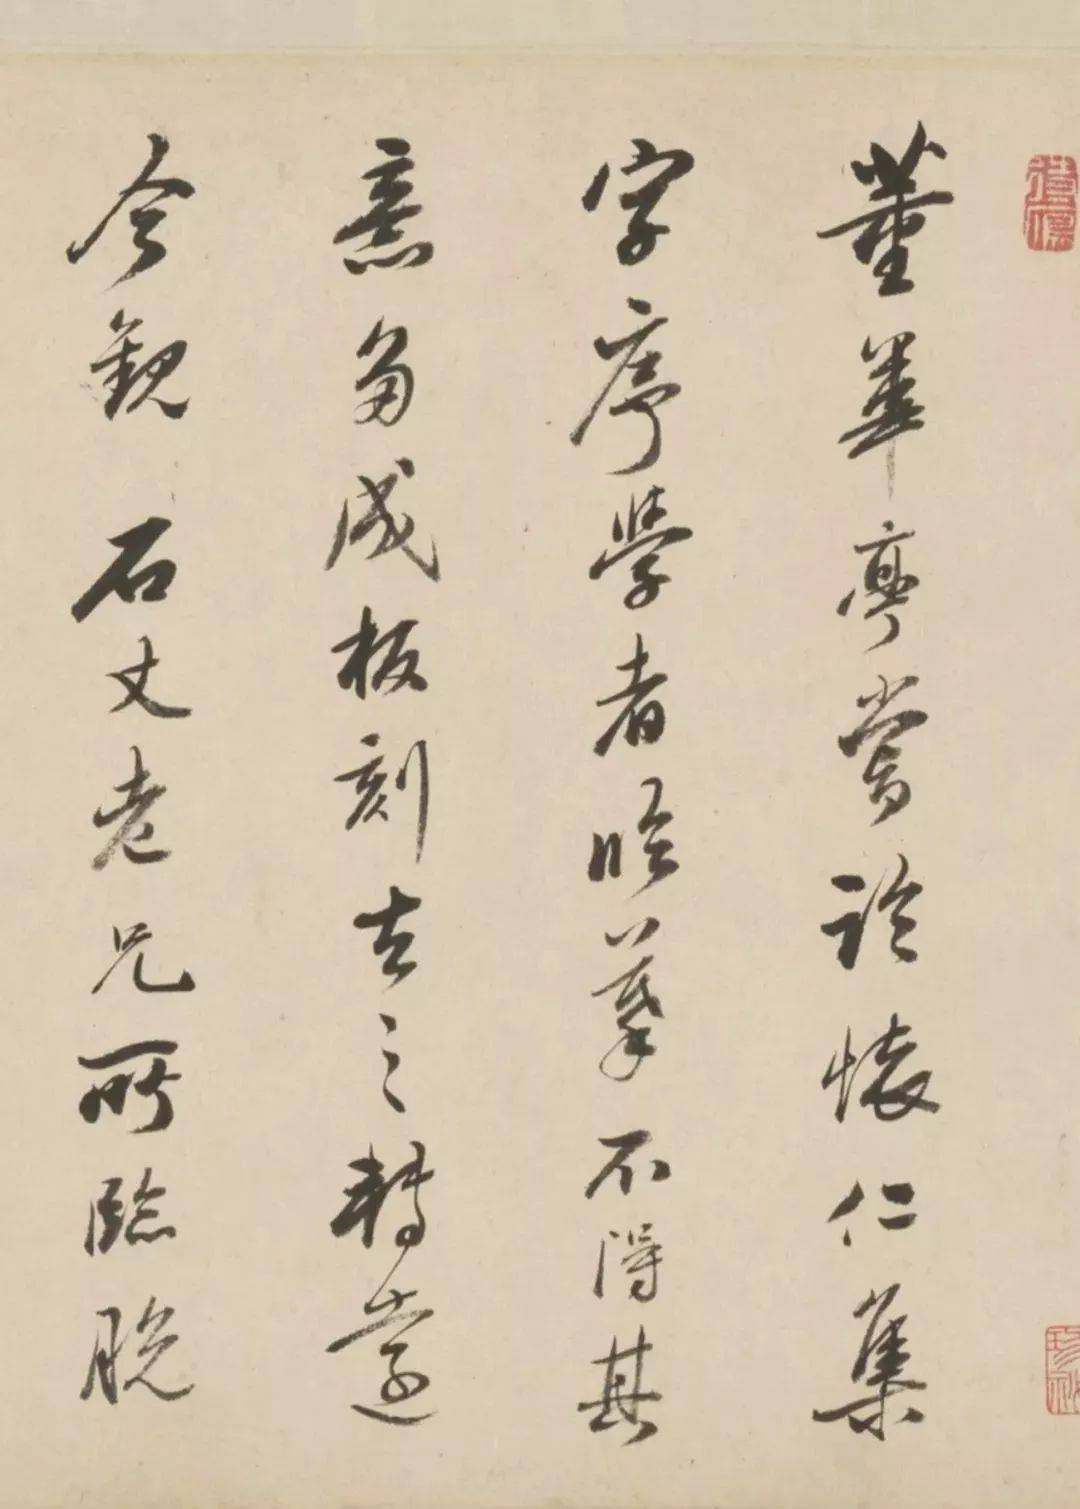 董華亭嘗論懷仁集
字序學者臨摹不得其
意多成板刻去之轉遠
今觀石丈老兄所臨脫